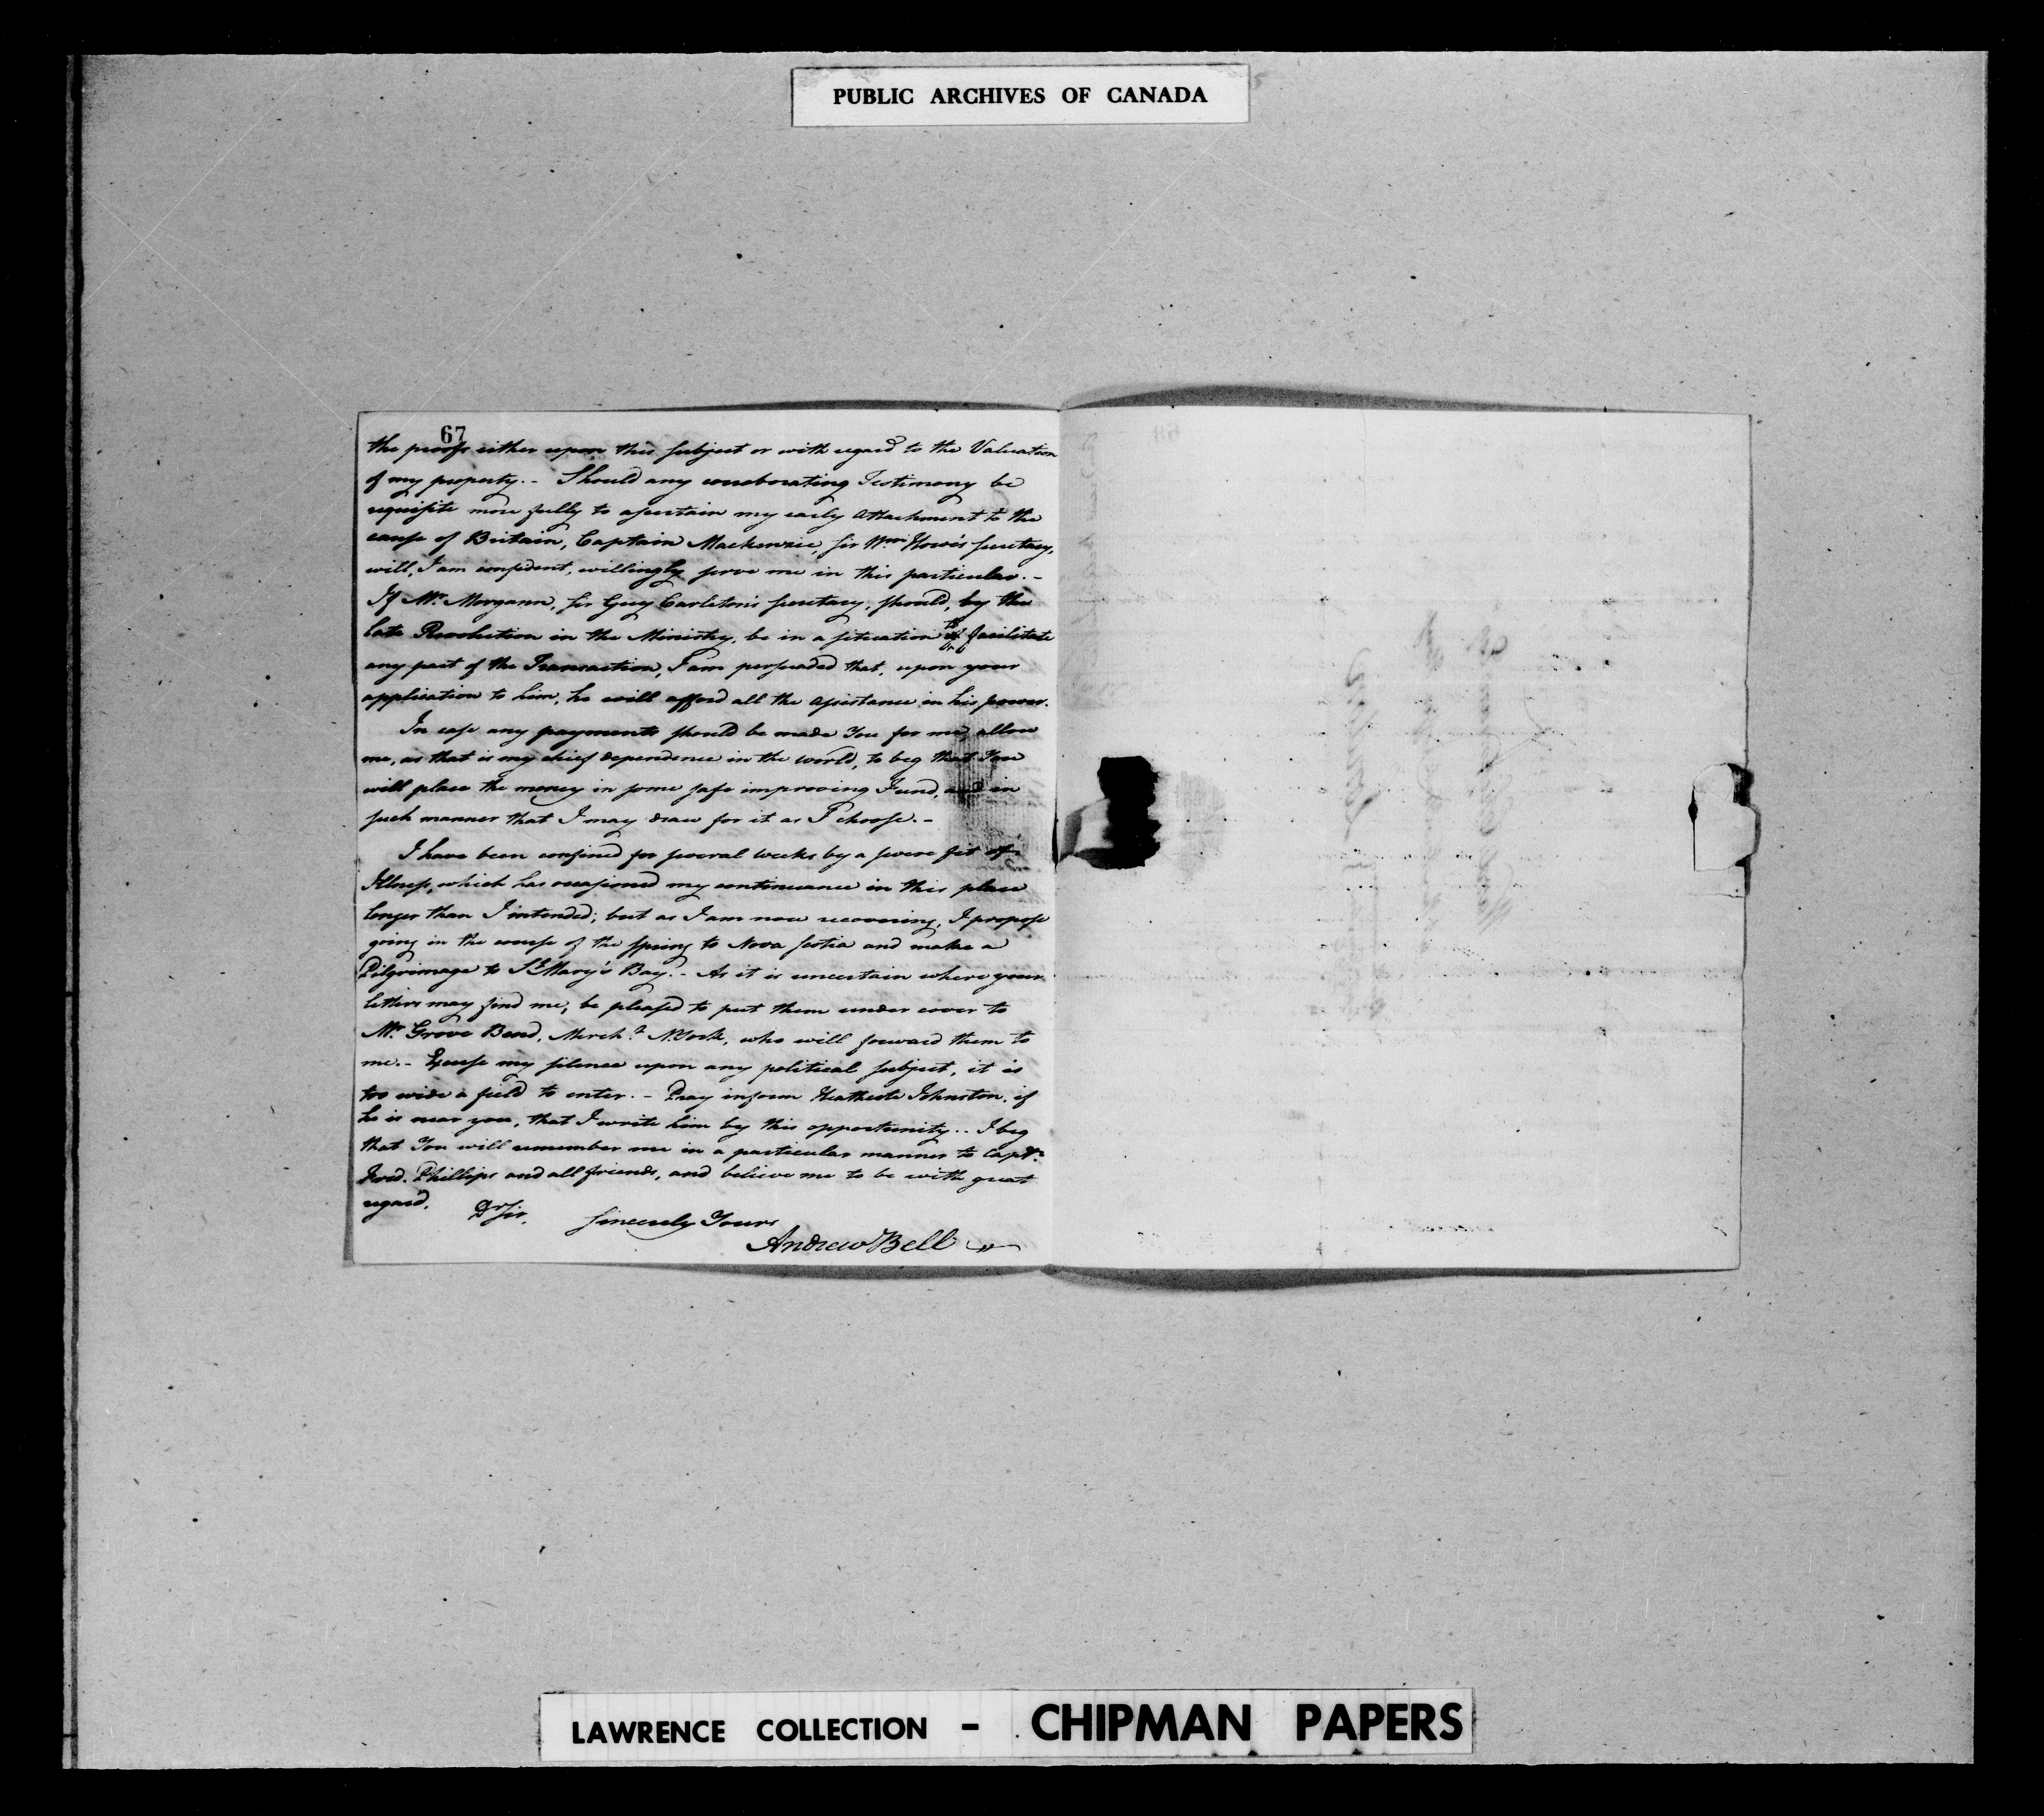 PUBLIC ARCHIVES OF CANADA
67
the proofs either upon this subject or with regard to the Valuation
of my property. - Should any corroborating Testimony be
requisite more fully to ascertain my early attachment to the
cause of Britain, Captain Mackenzie, Sir Wm. Howe's Secretary,
will, I am confident, willingly serve me in this particular. -
If Mr. Morgann, Sir Guy Carleton's Secretary, should, by the
late Revolution in the Ministry, be in a situation to facilitate
any part of the Transaction, I am persuaded that, upon your
application to him, he will afford all the assistance in his power.
In case any payments should be made You for me, allow
me, as that is my chief dependence in the world, to beg that You
will place the money in some safe improving Fund, and in
such manner that I may draw for it as I choose. -
I have been confined for several weeks by a severe fit of
Illness, which has occasioned my continuance in this place
longer than I intended; but as I am now recovering, I propose
going in the course of the Spring to Nova Scotia and make a
Pilgrimage to St. Mary's Bay. - As it is uncertain where your
letters may find me, be pleased to put them under cover to
Mr. Grove Bend, Mercht. N. York, who will forward them to
me. - Excuse my silence upon any political subject, it is
too wide a field to enter. - Pray inform Heathcote Johnston, if
he is near you, that I write him by this opportunity. - I beg
that You will remember me in a particular manner to Captn.
Fred. Phillips and all friends, and believe me to be with great
regard,
Dr Sir,
Sincerely Yours
Andrew Bell
LAWRENCE COLLECTION - CHIPMAN PAPERS